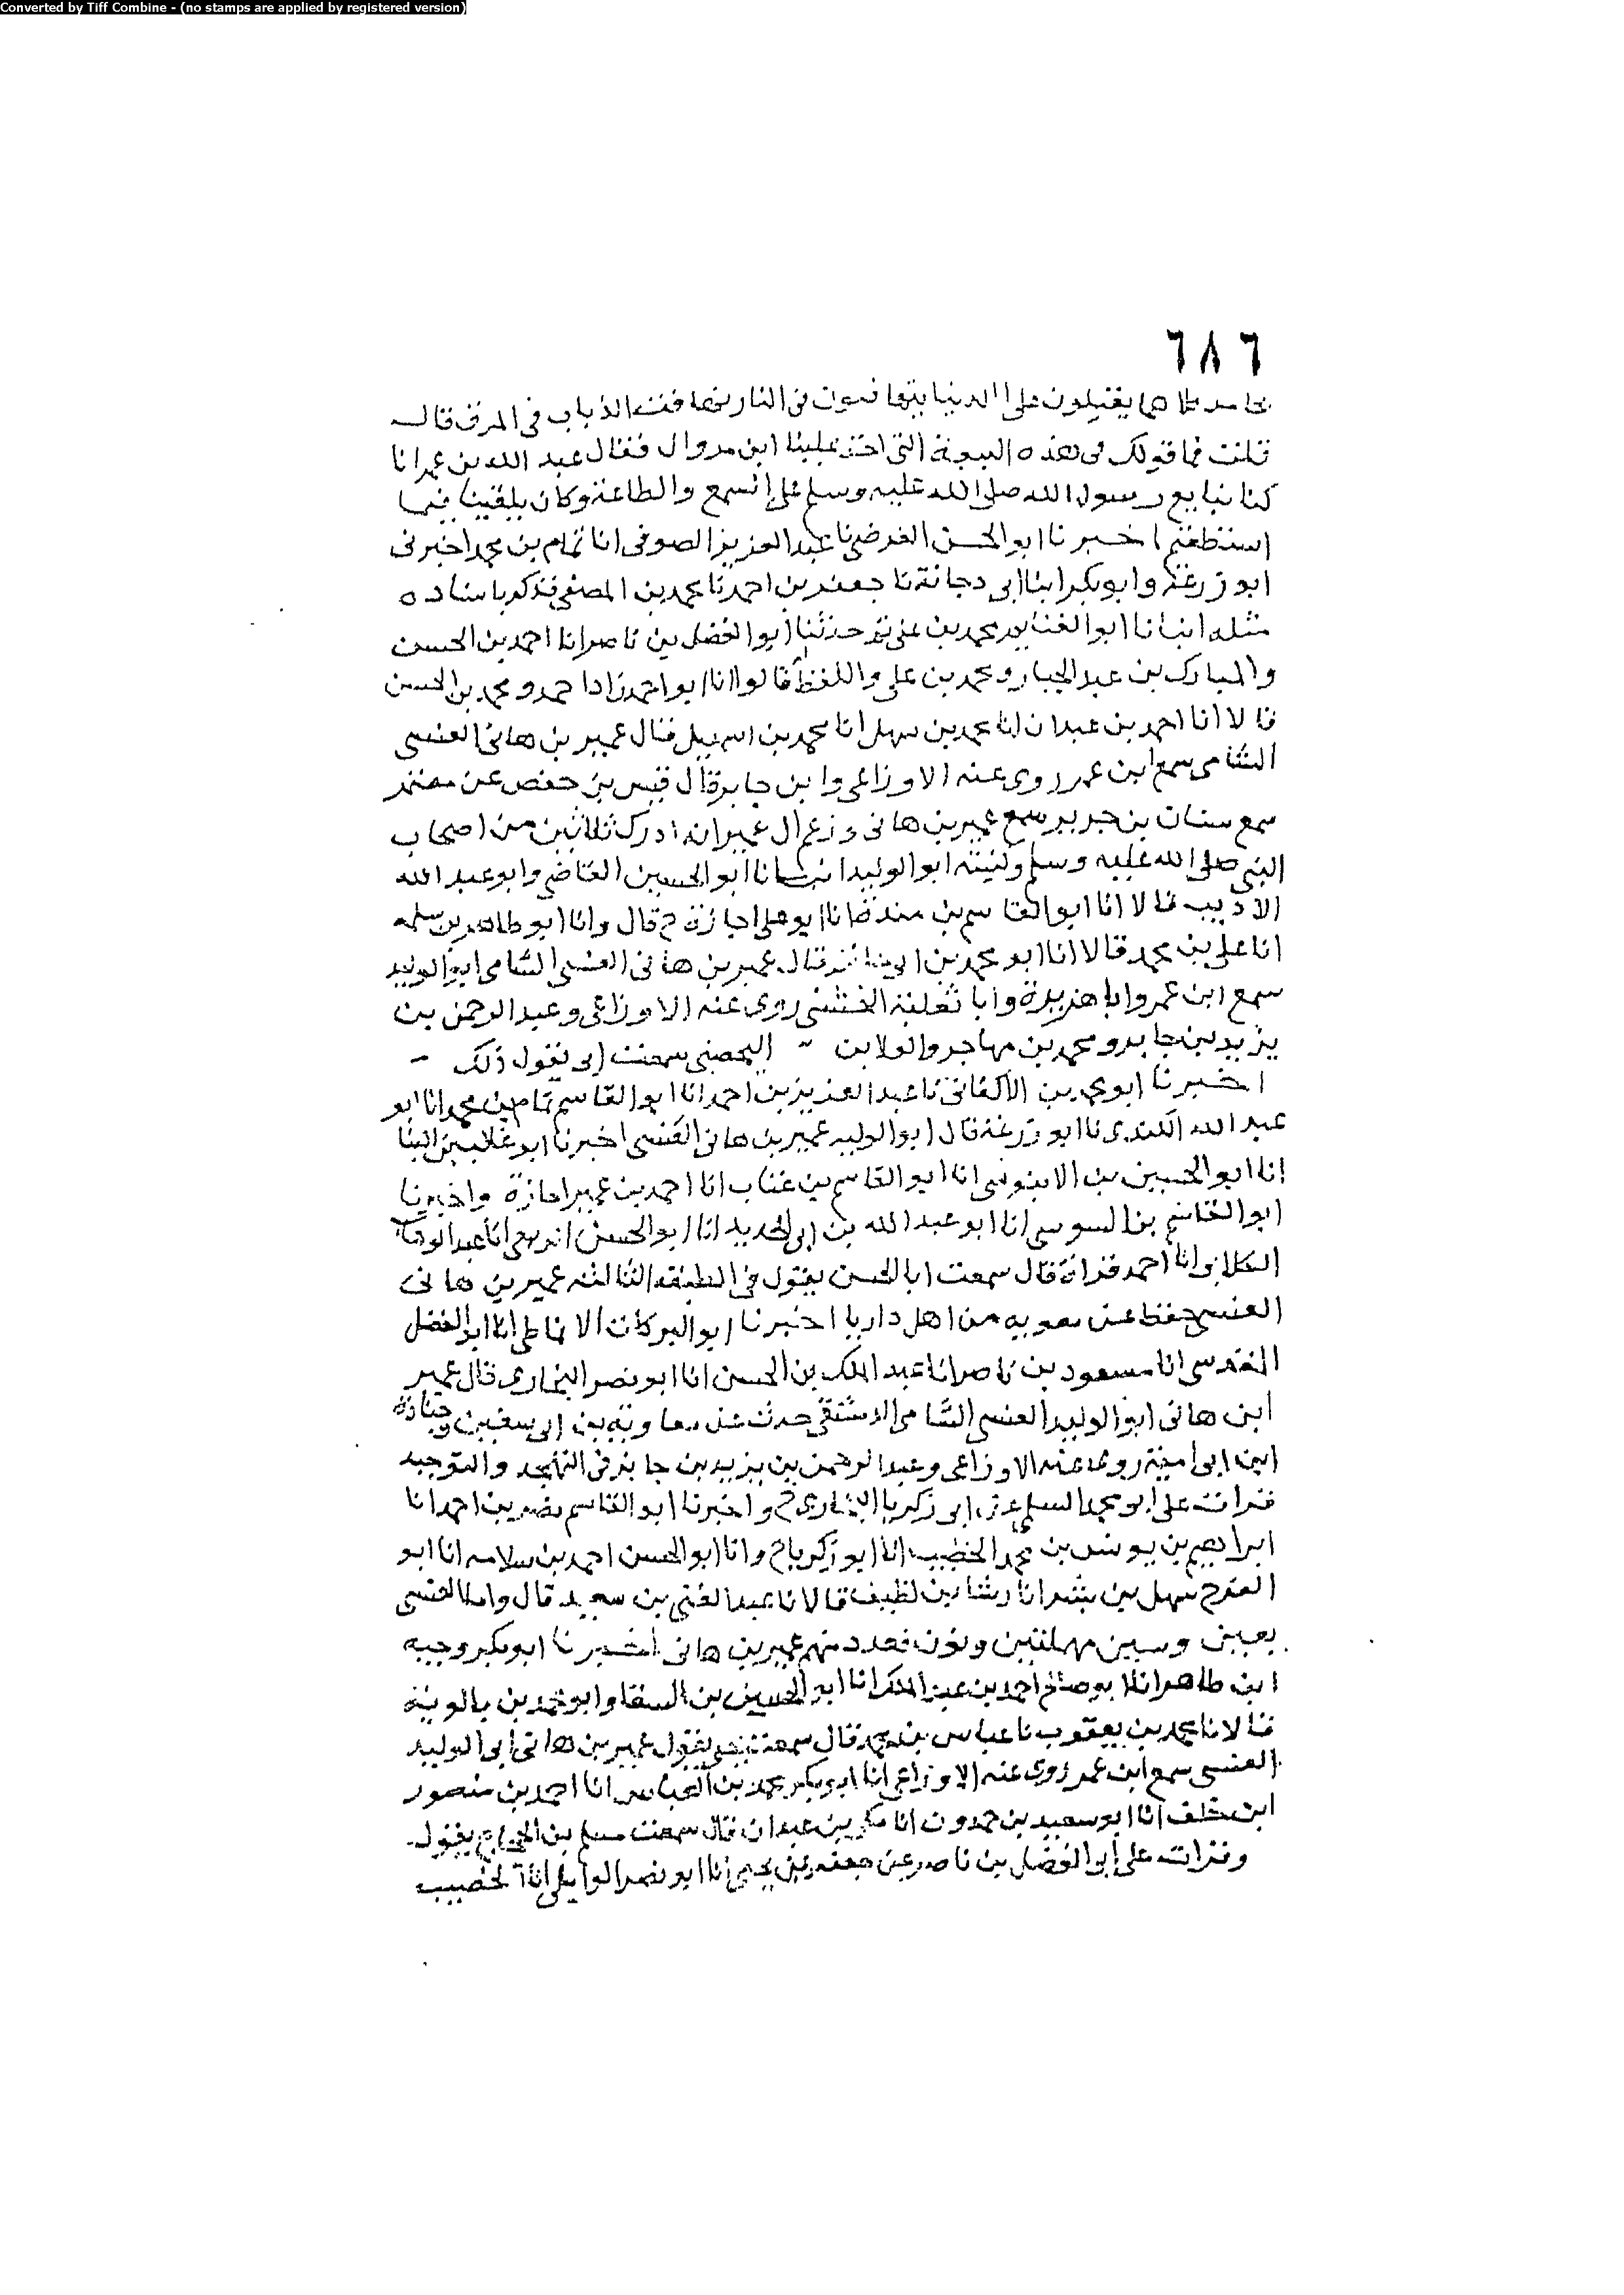 Converted by Tiff Combine - (no stamps are applied by registered version)
٦٨٦
يقتلون على الدنيا يتهافتون في النار تهافت الذباب في المرق قال
قلت فما قولك في هذه البيعة التي اخذ علينا ابن مروان فقال عبد الله بن عمر انا
كنا نبايع رسول الله صلى الله عليه وسلم على السمع والطاعة وكان يلقينا فيما
استطعتم اخبرنا ابو الحسن الفرضي نا عبد العزيز الصوفي انا تمام بن محمد اخبرني
ابو زرعة وابو بكر ابنا ابي دجانة نا جعفر بن احمد نا محمد بن المصفى فذكر باسناده
مثله انبانا ابو الغنايم محمد بن علي ثم حدثنا ابو الفضل بن ناصر انا احمد بن الحسن
والمبارك بن عبد الجبار ومحمد بن علي واللفظ له قالوا انا ابو احمد زاد احمد ومحمد بن الحسن
قالا انا احمد بن عبدان انا محمد بن سهل انا محمد بن اسمعيل قال عمير بن هاني العنسي
الشامي سمع ابن عمر روى عنه الاوزاعي وابن جابر قال قيس بن حفص عن معتمر
سمع سنان بن جرير سمع عمير بن هاني وزعم ال عمير انه ادرك ثلاثين من اصحاب
النبي صلى الله عليه وسلم وكنيته ابو الوليد انبانا ابو الحسين القاضي وابو عبد الله
الاديب قالا انا ابو القاسم بن مندة انا ابو علي اجازة ح قال وانا ابو طاهر بن سلمه
انا علي بن محمد قالا انا ابو محمد بن ابي حاتم قال عمير بن هاني العنسي الشامي ابو الوليد
سمع ابن عمر وابا هريرة وابا ثعلبة الخشني روى عنه الاوزاعي وعبد الرحمن بن
يزيد بن جابر ومحمد بن مهاجر والعلا بن اليحصبي سمعت ابي يقول ذلك
اخبرنا ابو محمد بن الاكفاني نا عبد العزيز بن احمد انا ابو القاسم تمام بن محمد انا ابو
عبد الله الكندي نا ابو زرعة قال ابو الوليد عمير بن هاني العنسي اخبرنا ابو غالب بن البنا
انا ابو الحسين بن الابنوسي انا ابو القاسم بن عتاب انا احمد بن عمير اجازة واخبرنا
ابو القاسم بن السوسي انا ابو عبد الله بن ابي الحديد انا ابو الحسن الربعي انا عبد الوهاب
الكلابي انا احمد قراة قال سمعت ابا الحسن يقول في الطبقه الثالثه عمير بن هاني
العنسي حفظ عن معويه من اهل داريا اخبرنا ابو البركات الانماطي انا ابو الفضل
المقدسي انا مسعود بن ناصر انا عبد الملك بن الحسن انا ابو نصر البخاري قال عمير
ابن هاني ابو الوليد العنسي الشامي الدمشقي حدث عن معاوية بن ابي سفين وجنادة
ابن ابي امية روى عنه الاوزاعي وعبد الرحمن بن يزيد بن جابر في التهجد والتوحيد
قرات على ابو محمد السلمي عن ابي زكريا البخاري ح واخبرنا ابو القاسم نصر بن احمد انا
ابراهيم بن يونس بن محمد الخطيب انا ابو زكريا ح وانا ابو الحسن احمد بن سلامه انا ابو
الفرج سهل بن بشر انا رشا بن نظيف قالا نا عبد الغني بن سعيد قال واما العنسي
بعين وسين مهملتين ونون فعدد منهم عمير بن هاني اخبرنا ابو بكر وجيه
ابن طاهر انا ابو صالح احمد بن عبد الملك انا ابو الحسين بن السقا وابو محمد بن بالويه
قالا نا محمد بن يعقوب نا عباس بن محمد قال سمعت يحيى يقول عمير بن هاني ابي الوليد
العنسي سمع ابن عمر روى عنه الاوزاعي انا ابو بكر محمد بن العباس انا احمد بن منصور
ابن خلف انا ابو سعيد بن حمدون انا مكي بن عبدان قال سمعت مسلم بن الحجاج يقول
وقرات على ابي الفضل بن ناصر عن جعفر بن يحيى انا ابو نصر الوايلي انا الخصيب